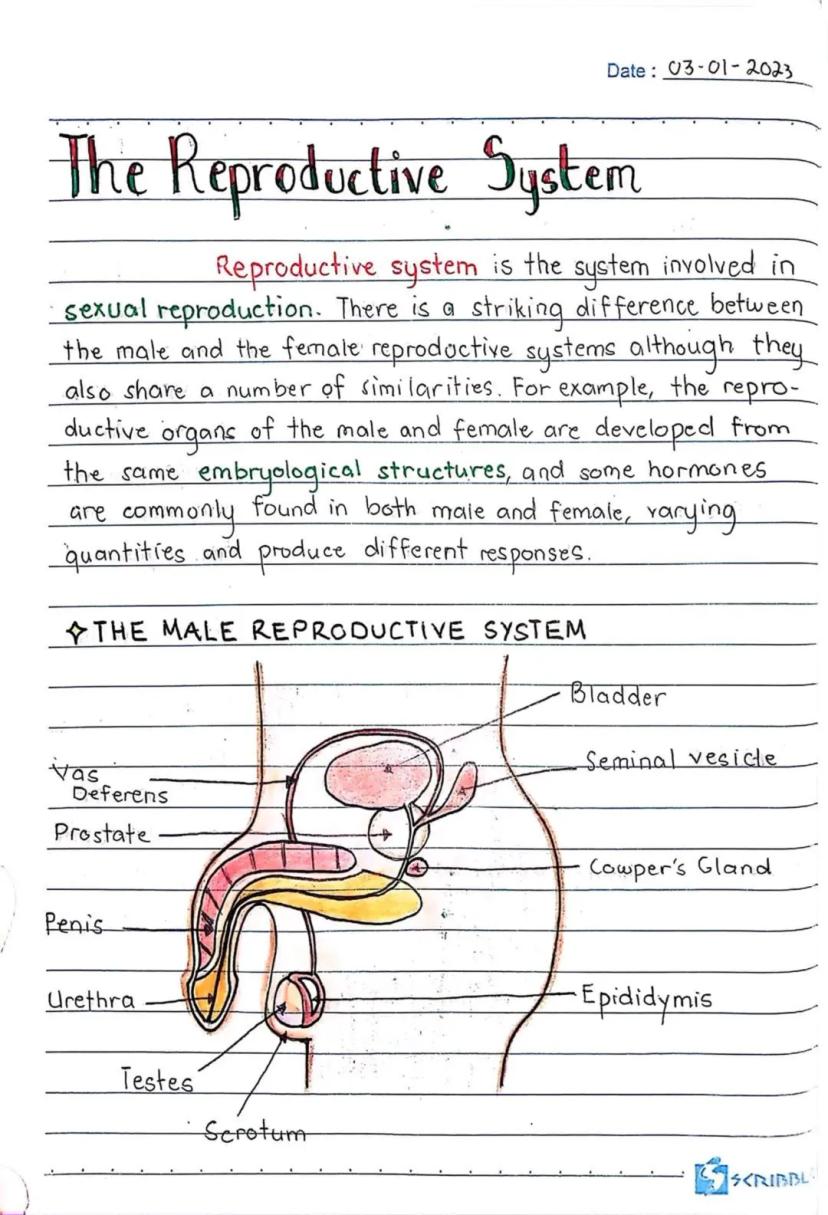 Date : 03-01-2023
The Reproductive System
Reproductive system is the system involved in
sexual reproduction. There is a striking difference between
the male and the female reproductive systems although they
also share a number of similarities. For example, the repro-
ductive organs of the male and female are developed from
the same embryological structures, and some hormones
are commonly found in both male and female, varying
quantities and produce different responses.
✧ THE MALE REPRODUCTIVE SYSTEM
Bladder
Seminal vesicle
Vas
Deferens
Prostate
Cowper's Gland
Penis
Urethra
Epididymis
Testes
Scrotum
SCRIBBL